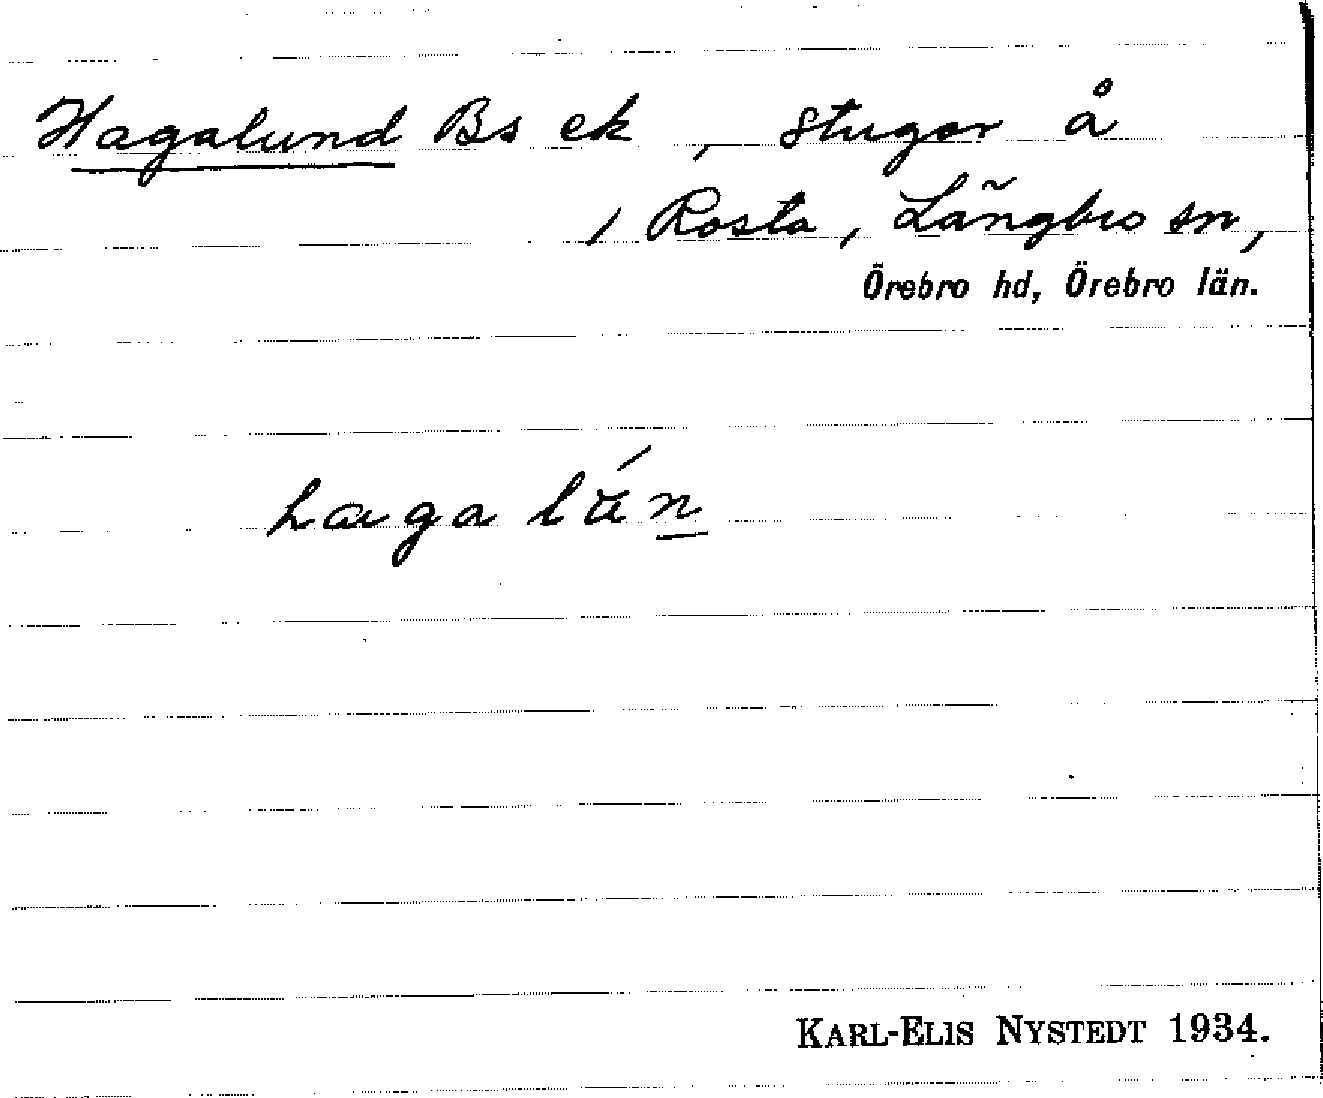 Hagalund Bs ek, stugor å
1 Rosta, Längbro sn,
Örebro hd, Örebro län.
haga lún
KARL-ELIS NYSTEDT 1934.